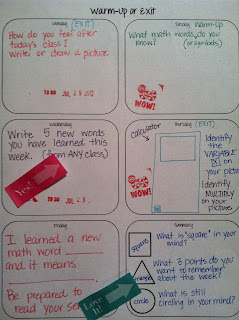 Warm-Up or Exit
Monday (EXIT)
How do you feel after
today's class?
Write or draw a picture
TO DO JUL 2 8 2012
Tuesday Warm-Up
What math words do you
know? (or symbols)
WOW!
TO DO
Wednesday
Write 5 new words
you have learned this
week. (from ANY class)
Yes!
Thursday (EXIT)
calculator
Identify
the
VARIABLE
[X] on
your picture
Identify
MULTIPLY
on your
picture
WOW!
I learned a new
math word
and it means
Be prepared to
read your sen
Love
It!
Summary
square
What is "square" in your
mind?
triangle
What 3 points do you
want to remember
about the week?
circle
What is still
circling in your mind?